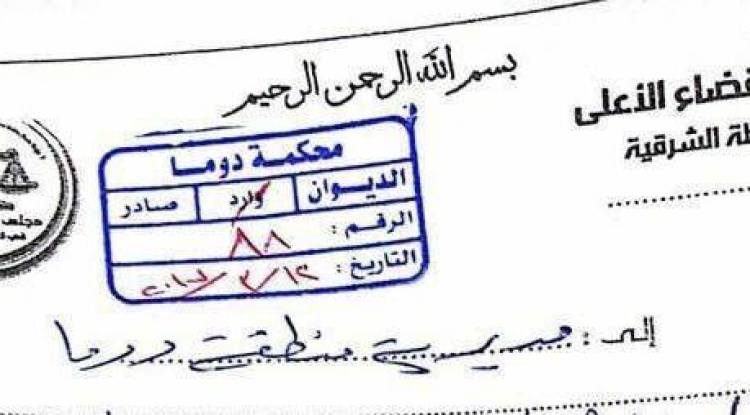 بسم الله الرحمن الرحيم
الأعلى
الشرقية
محكمة دوما
الديوان وارد صادر
الرقم : ٨٨
التاريخ : ١٢/٣/٢٠١٧
إلى : مديرية منطقة دوما
مجلس